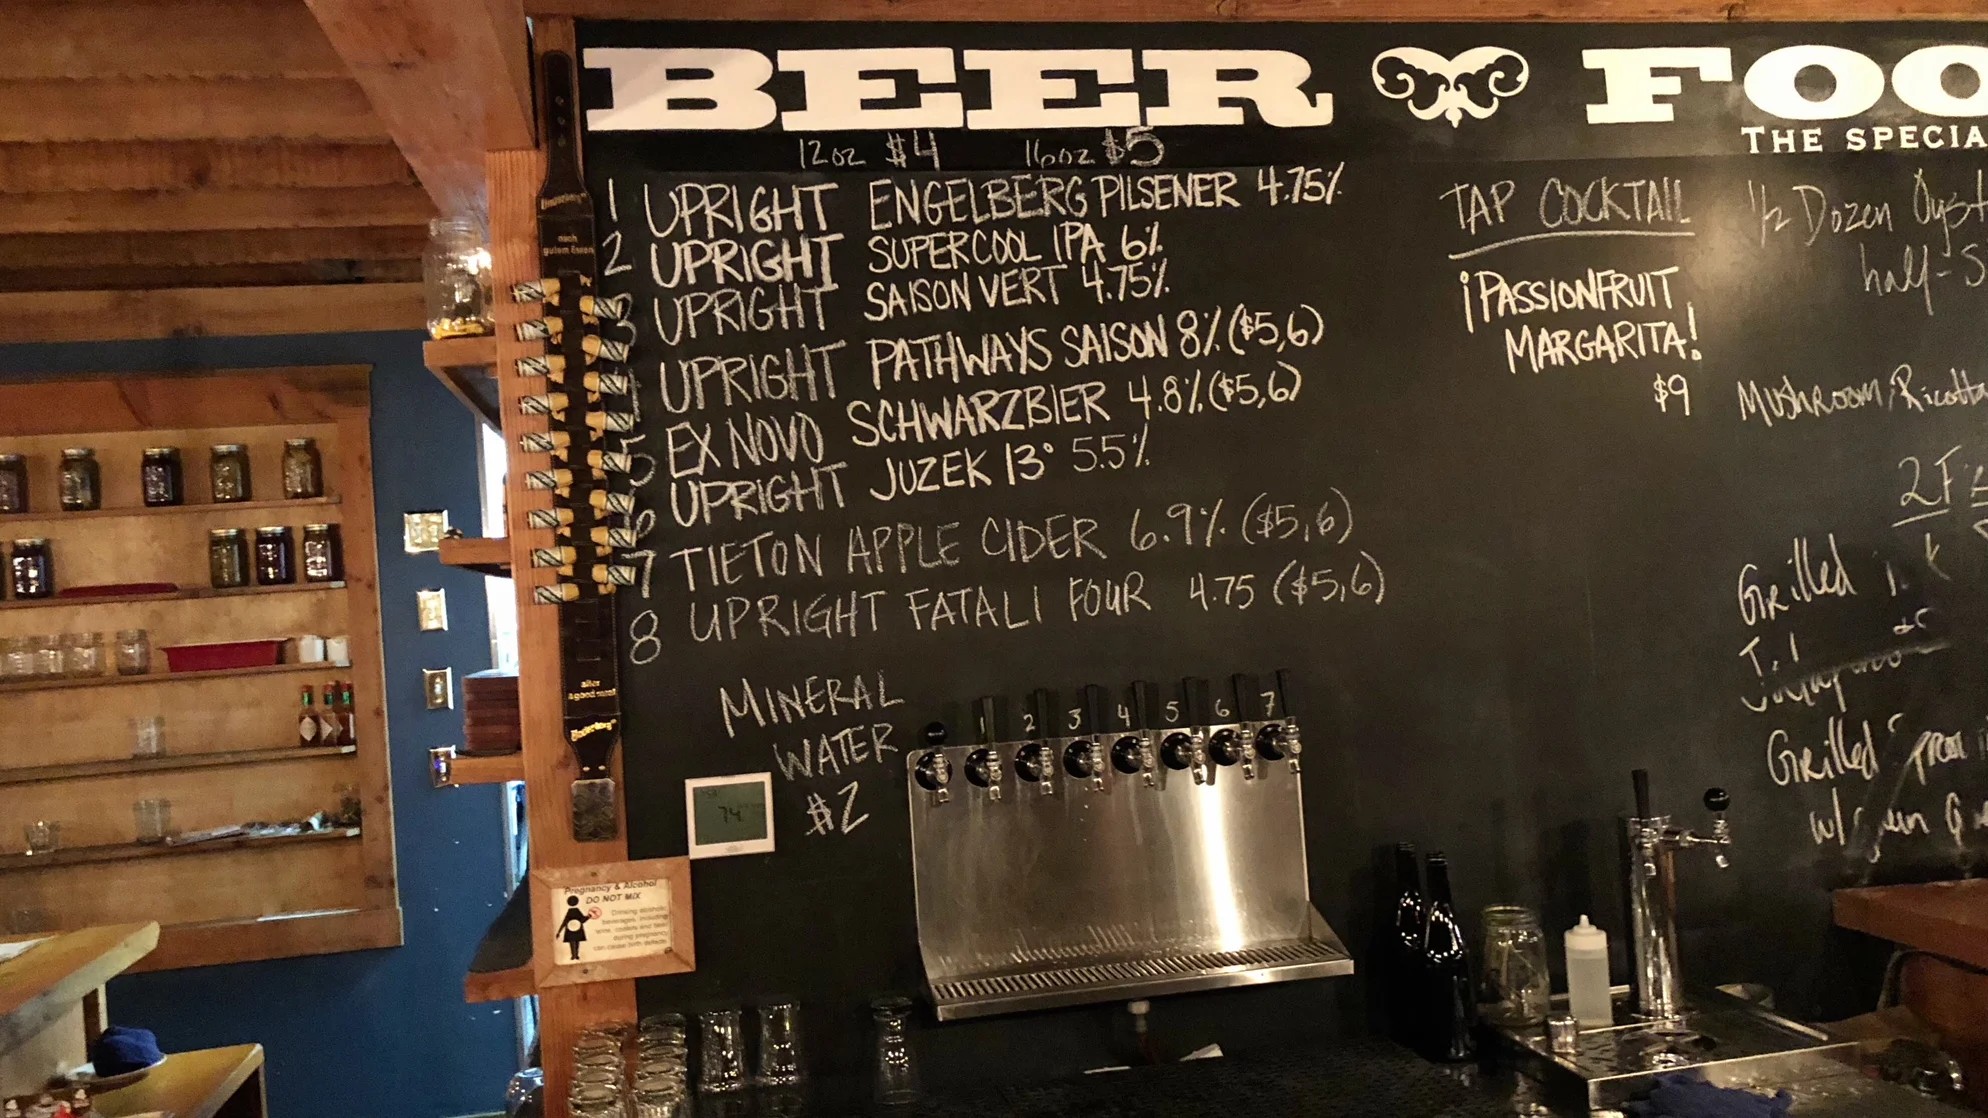 BEER FOO
THE SPECIA
12oz $4 16oz $5
1 UPRIGHT ENGELBERG PILSENER 4.75%
2 UPRIGHT SUPERCOOL IPA 6%
3 UPRIGHT SAISON VERT 4.75%
4 UPRIGHT PATHWAYS SAISON 8% ($5,6)
5 EX NOVO SCHWARZBIER 4.8% ($5,6)
6 UPRIGHT JUZEK 13° 5.5%
7 TIETON APPLE CIDER 6.9% ($5,6)
8 UPRIGHT FATALI FOUR 4.75 ($5,6)
MINERAL
WATER
$2
1 2 3 4 5 6 7
TAP COCKTAIL
¡PASSIONFRUIT
MARGARITA!
$9
1/2 DOZEN Oyst
half-S
MUSHROOM, Ricotta
Grilled
Grilled
w/
Underberg
nach
gutem Essen
after
a good meal
Underberg
74
Pregnancy & Alcohol
DO NOT MIX
Drinking alcoholic
beverages, including
wine, coolers and beer
during pregnancy
can cause birth defects.